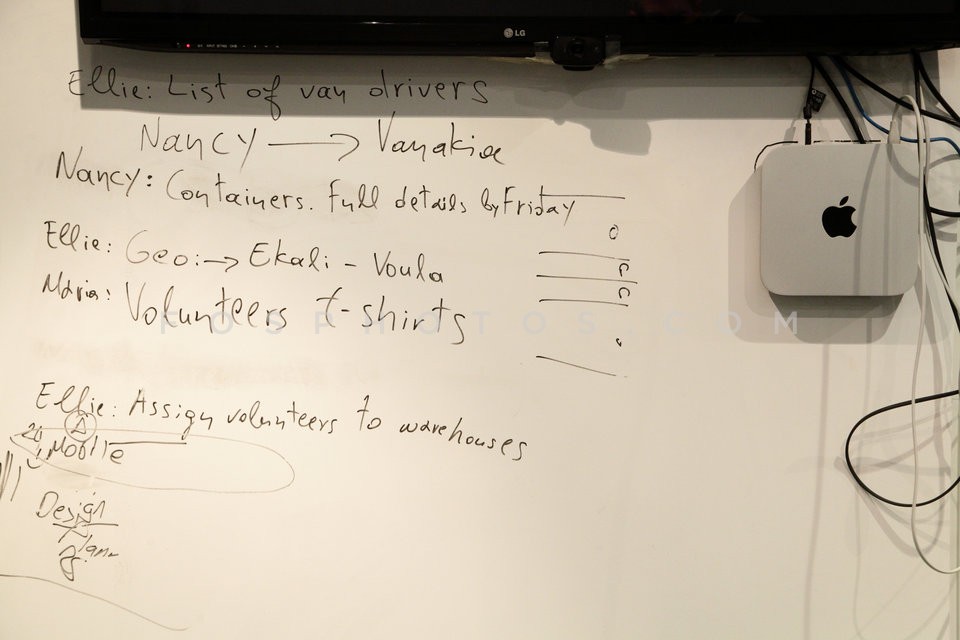 LG
Ellie: List of van drivers
Nancy → Vanakia
Nancy: Containers. Full details by Friday
Ellie: Geo: → Ekali - Voula
Maria: Volunteers t-shirts
FOSPHOTOS.COM
Ellie: Assign volunteers to warehouses
Mobile
Design